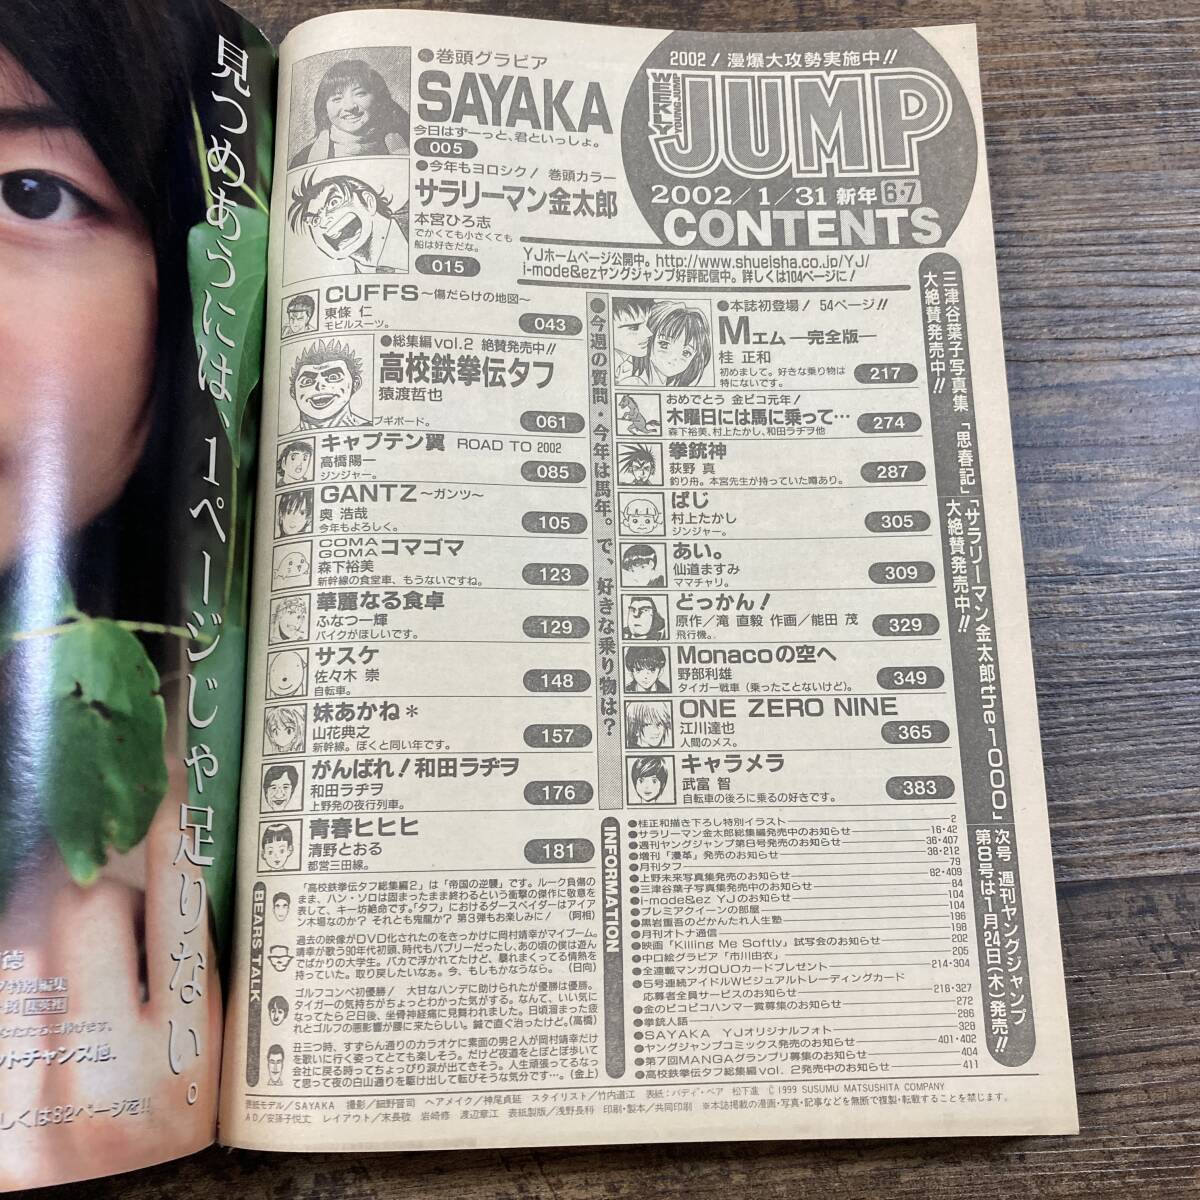 見つめあうには、1ページじゃ足りない。
集英社
しくは82ページを!!
2002!漫爆大攻勢実施中!!
WEEKLY YOUNG JUMP
JUMP
2002/1/31 新年 6・7
CONTENTS
●巻頭グラビア
SAYAKA
今日はずーっと、君といっしょ。
005
●今年もヨロシク! 巻頭カラー
サラリーマン金太郎
本宮ひろ志
でかくても小さくても
船は好きだな。
015
YJホームページ公開中。http://www.shueisha.co.jp/YJ/
i-mode&ezヤングジャンプ好評配信中。詳しくは104ページに!
CUFFS ～傷だらけの地図～
東條 仁
モビルスーツ。
043
●総集編vol.2 絶賛発売中!!
高校鉄拳伝タフ
猿渡哲也
ブギボード。
061
キャプテン翼 ROAD TO 2002
高橋陽一
ジンジャー。
085
GANTZ ～ガンツ～
奥 浩哉
今年もよろしく。
105
COMA GOMA コマゴマ
森下裕美
新幹線の食堂車、もうないですね。
123
華麗なる食卓
ふなつ一輝
バイクがほしいです。
129
サスケ
佐々木 崇
自転車。
148
妹あかね＊
山花典之
新幹線。ぼくと同い年です。
157
がんばれ!和田ラヂヲ
和田ラヂヲ
上野発の夜行列車。
176
青春ヒヒヒ
清野とおる
都営三田線。
181
●今週の質問・今年は馬年。で、好きな乗り物は?
●本誌初登場! 54ページ!!
Mエム ―完全版―
桂 正和
初めまして。好きな乗り物は
特にないです。
217
おめでとう 金ピコ元年!
木曜日には馬に乗って…
森下裕美、村上たかし、和田ラヂヲ他
274
拳銃神
荻野 真
釣り舟。本宮先生が持っていた噂あり。
287
ぱじ
村上たかし
ジンジャー。
305
あい。
仙道ますみ
ママチャリ。
309
どっかん!
原作/滝 直毅 作画/能田 茂
飛行機。
329
Monacoの空へ
野部利雄
タイガー戦車(乗ったことないけど)。
349
ONE ZERO NINE
江川達也
人間のメス。
365
キャラメラ
武富 智
自転車の後ろに乗るの好きです。
383
三津谷葉子写真集「思春記」
大絶賛発売中!!
「サラリーマン金太郎the1000」
大絶賛発売中!!
次号 週刊ヤングジャンプ
第8号は1月24日(木)発売!!
BEARS TALK
「高校鉄拳伝タフ総集編2」は「帝国の逆襲」です。ルーク負傷の
まま、ハン・ソロは固まったまま終わるという衝撃の傑作に敬意を
表して、キー坊絶命です。「タフ」におけるダースベイダーはアイア
ン木場なのか? それとも鬼龍か? 第3弾もお楽しみに! (阿相)
過去の映像がDVD化されたのをきっかけに岡村靖幸がマイブーム。
靖幸が歌う90年代初頭、時代もバブリーだったし、あの頃の僕は遊ん
でばかりの大学生。バカで浮かれてたけど、暴れまくってる情熱を
持っていた。取り戻したいなぁ。今、もしもかなうなら。 (日向)
ゴルフコンペ初優勝! 大甘なハンデに助けられたが優勝は優勝。
タイガーの気持ちがちょっとわかった気がする。なんて、いい気に
なってたら2日後、坐骨神経痛に見舞われました。日頃溜まった疲
れとゴルフの悪影響が腰に来たらしい。鍼で直ぐ治ったけど。(高橋)
丑三つ時、すずらん通りのカラオケに素面の男2人が岡村靖幸だけ
を歌いに行く姿ってとても楽しそう。だけど夜道をとぼとぼ歩いて
会社に戻る時ってちょっぴり涙が出てきそう。人生頑張ってるなっ
て思って夜の白山通りを駆け出して転びそうな気分です…。(金上)
INFORMATION
●桂正和描き下ろし特別イラスト 2
●サラリーマン金太郎総集編発売中のお知らせ 16・42
●週刊ヤングジャンプ第8号発売のお知らせ 36・407
●増刊「漫革」発売のお知らせ 38・212
●月刊タフ 79
●上野未来写真集発売のお知らせ 82・409
●三津谷葉子写真集発売中のお知らせ 84
●i-mode&ez YJのお知らせ 104
●プレミアクイーンの部屋 104
●黒岩重吾のどかんたれ人生塾 196
●月刊オトナ通信 198
●映画「Killing Me Softly」試写会のお知らせ 202
●中口絵グラビア「市川由衣」 205
●全連載マンガQUOカードプレゼント 214・304
●5号連続アイドルWビジュアルトレーディングカード
応募者全員サービスのお知らせ 216・327
●金のピコピコハンマー賞募集のお知らせ 272
●拳銃人語 286
●SAYAKA YJオリジナルフォト 328
●ヤングジャンプコミックス発売のお知らせ 401・402
●第7回MANGAグランプリ募集のお知らせ 404
●高校鉄拳伝タフ総集編vol. 2発売中のお知らせ 411
表紙モデル/SAYAKA 撮影/細野晋司 ヘアメイク/神尾貞延 スタイリスト/竹内道江 表紙・バディ・ベア 松下進 ©1999 SUSUMU MATSUSHITA COMPANY
AD/安孫子悦丈 レイアウト/末長敬 岩崎修 渡辺章江 表紙製版/浅野長科 印刷・製本/共同印刷 ※本誌掲載の漫画・写真・記事などを無断で複製・転載することを禁じます。